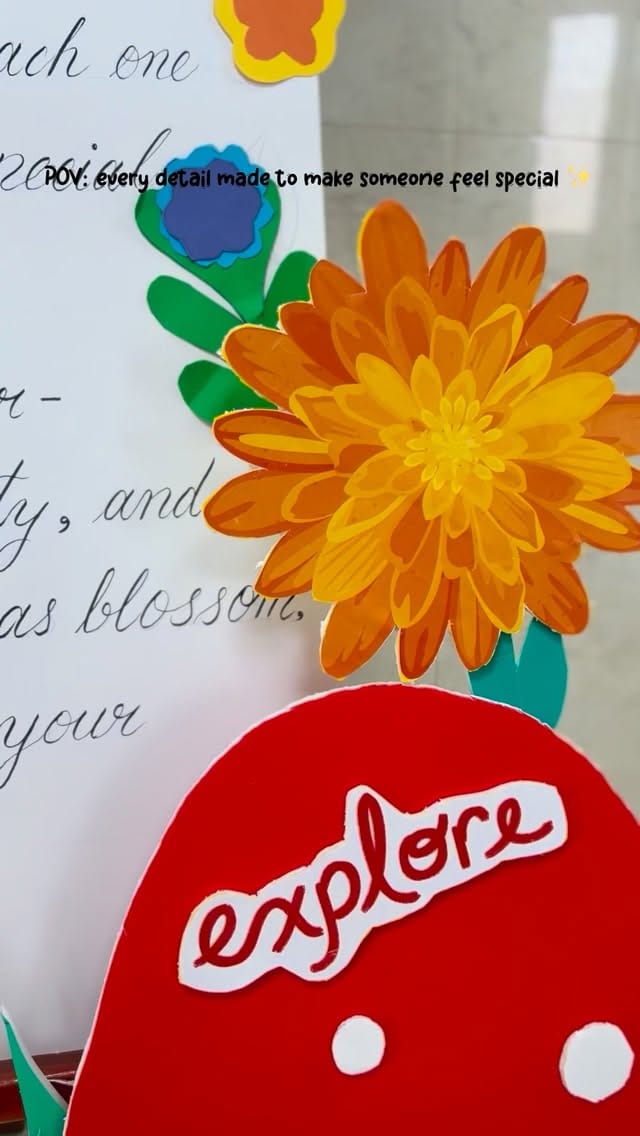 ach one
POV: every detail made to make someone feel special ✨
pecial
r-
ty, and
as blossom,
your
explore